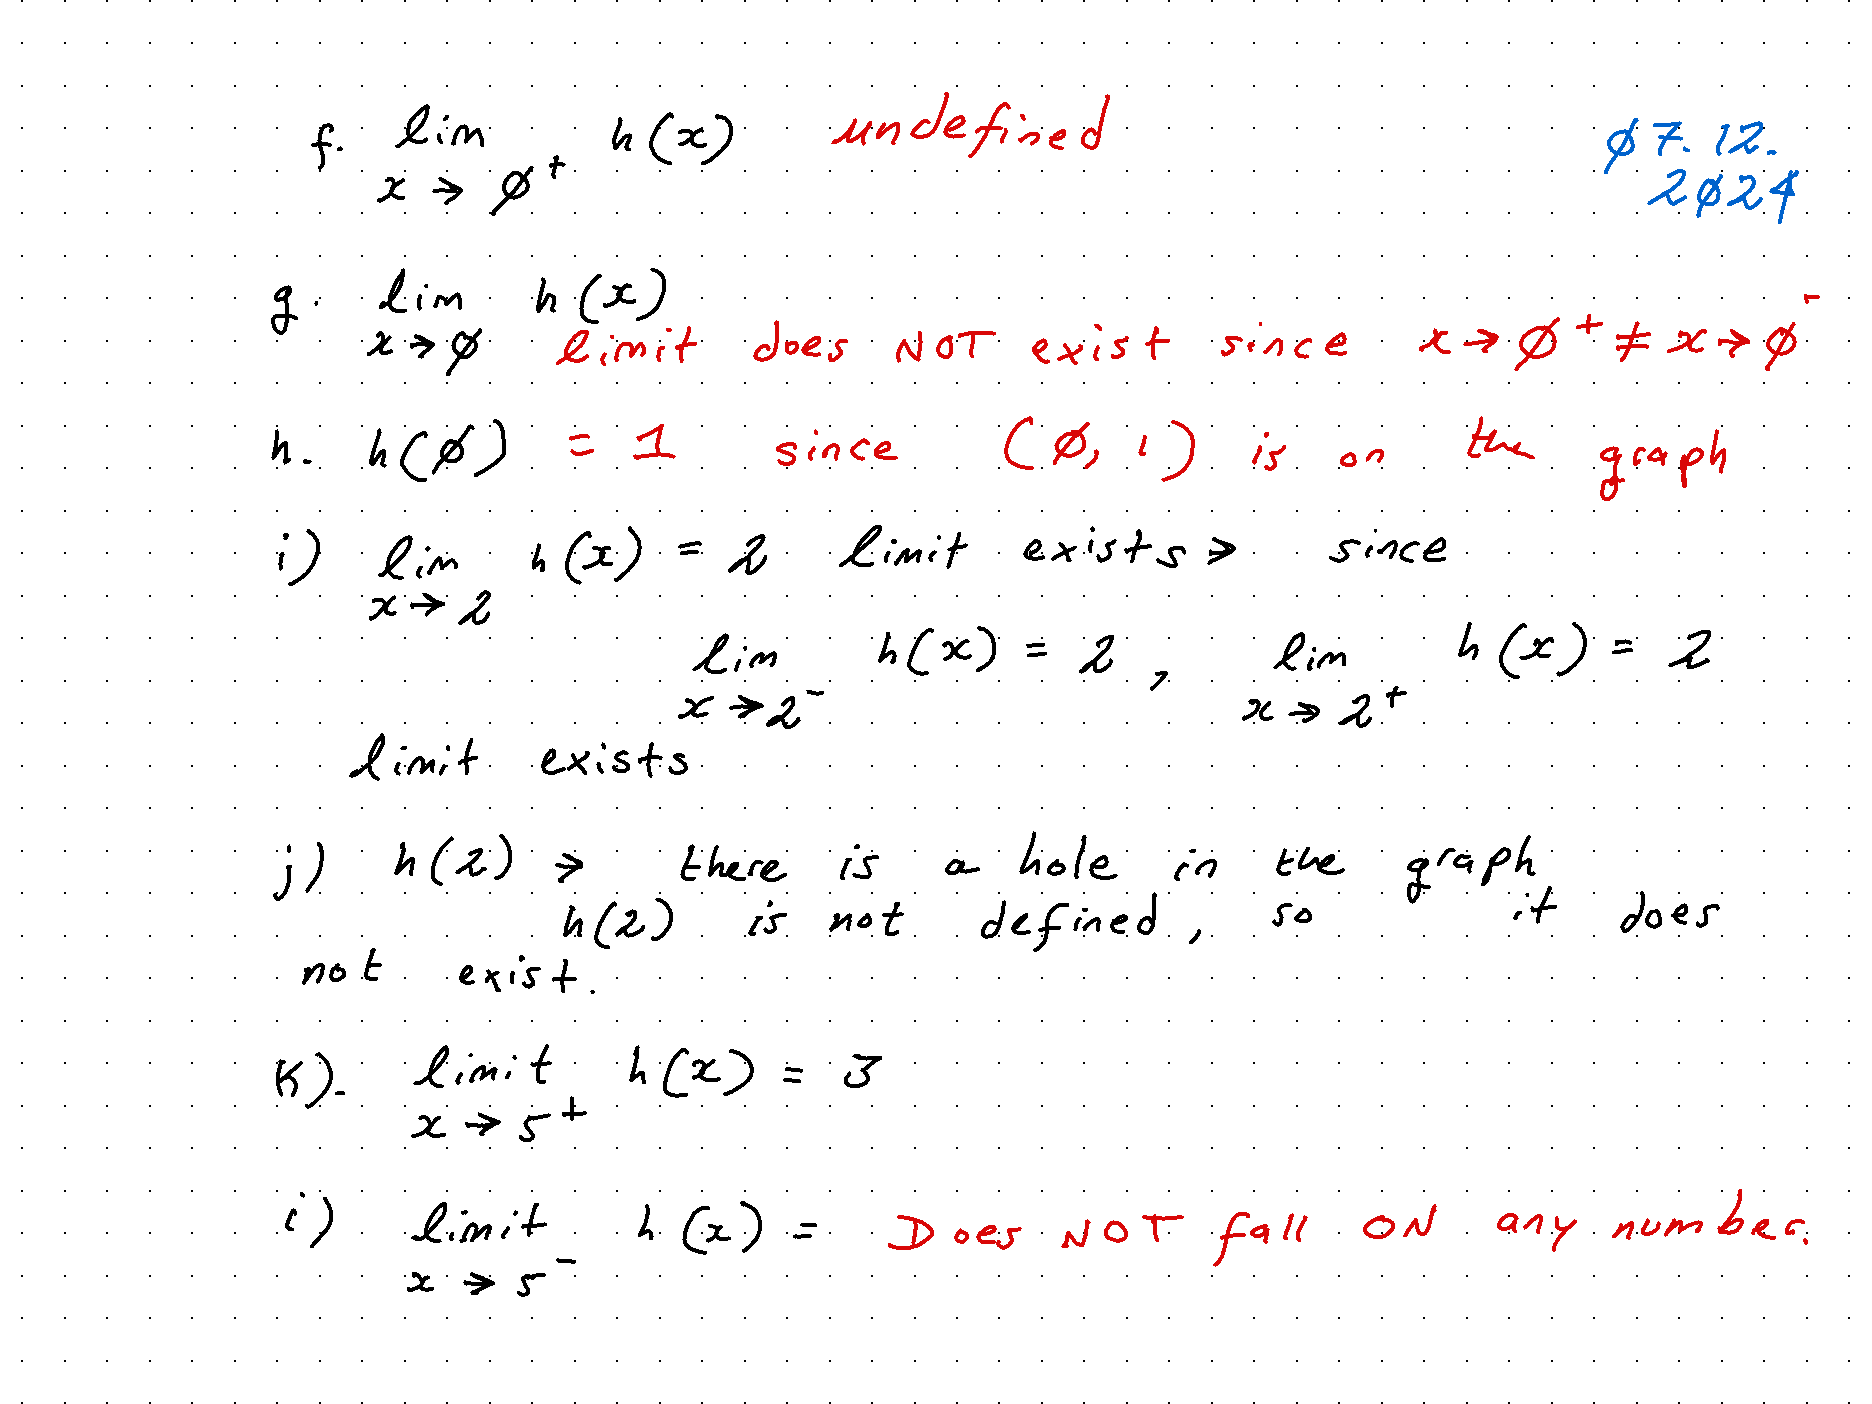 f. lim h(x) undefined
x → ∅⁺
∅7.12.
2∅24
g. lim h(x)
x → ∅ limit does NOT exist since x → ∅⁺ ≠ x → ∅⁻
h. h(∅) = 1 since (∅, 1) is on the graph
i) lim h(x) = 2 limit exists → since
x → 2
lim h(x) = 2 , lim h(x) = 2
x → 2⁻ x → 2⁺
limit exists
j) h(2) → there is a hole in the graph
h(2) is not defined, so it does
not exist.
K). limit h(x) = 3
x → 5⁺
i) limit h(x) = Does NOT fall ON any number.
x → 5⁻